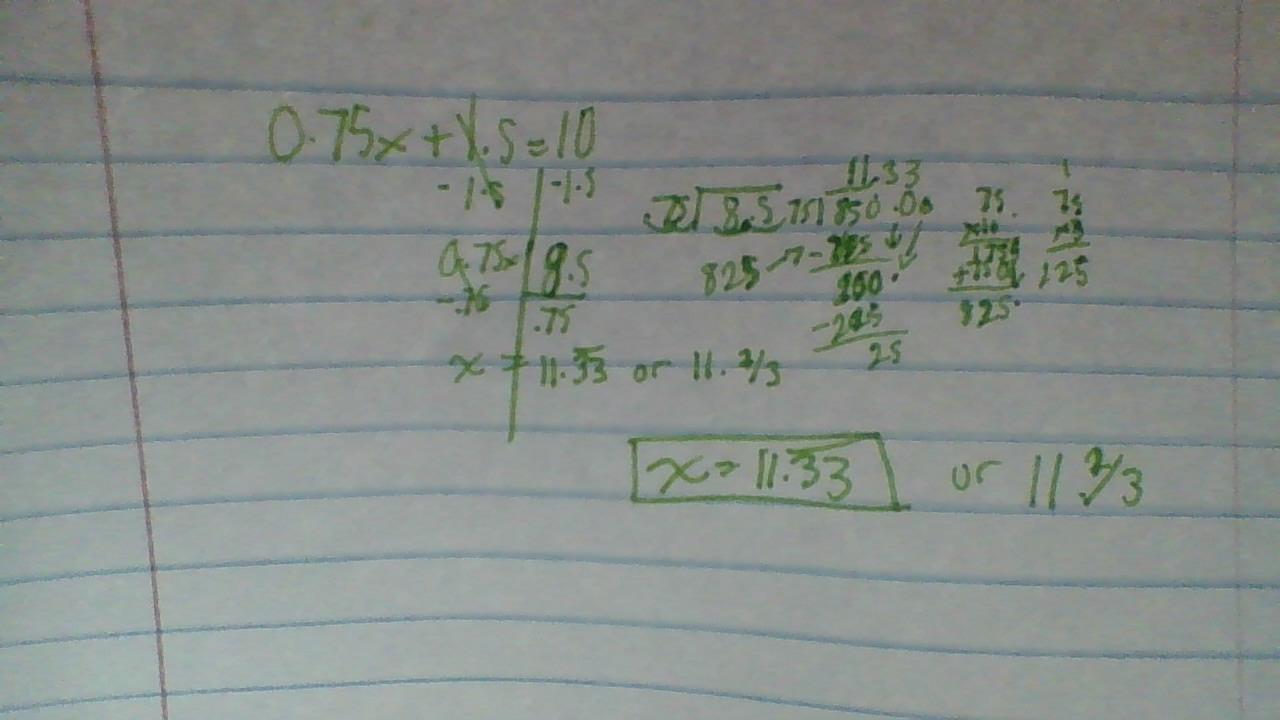 0.75x + 1.5 = 10
- 1.5 | -1.5
0.75x | 8.5
-.75 | .75
x = 11.33 or 11. 2/3
.75 8.5
11.33
75 850.00
825
- 825
250
- 225
25
75
x11
825
1
75
x3
225
x = 11.33 or 11 2/3